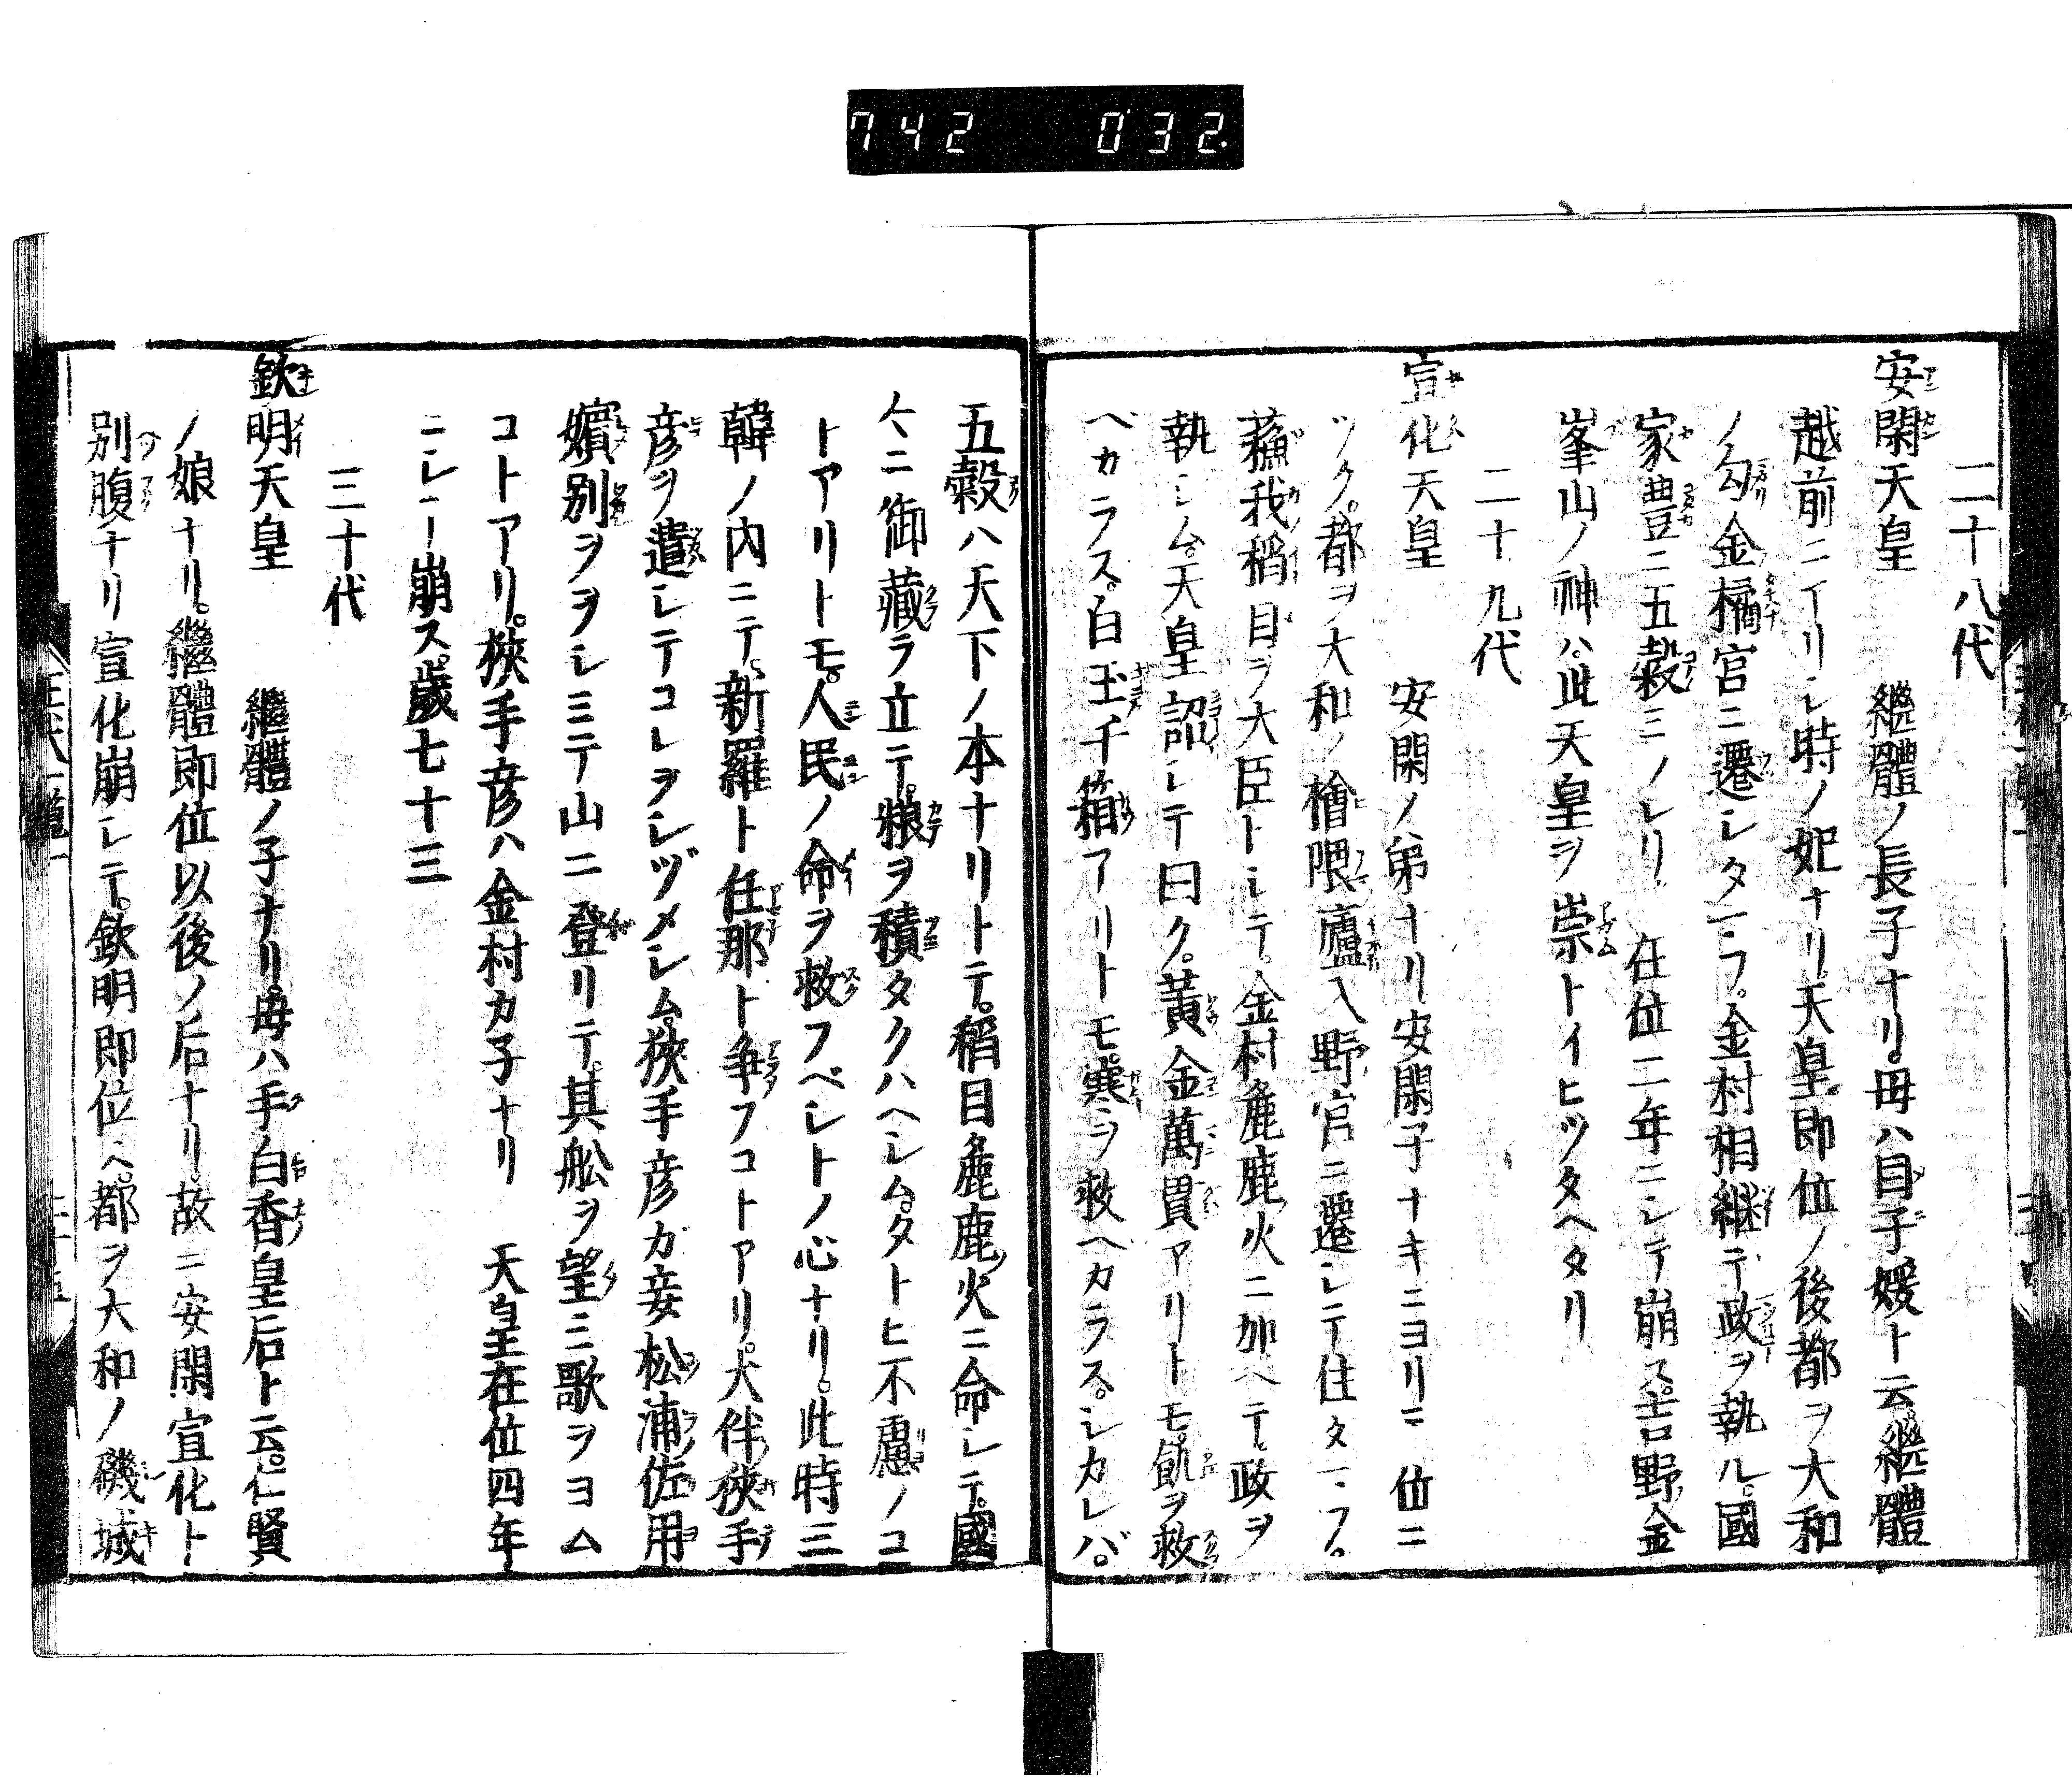 742 032.
二十八代
安閑天皇 繼體ノ長子ナリ。母ハ目子媛ト云。繼體
越前ニイリシ時ノ妃ナリ。天皇即位ノ後都ヲ大和
ノ勾金橘宮ニ遷シタマフ。金村相繼テ政ヲ執ル。國
家豊ニ五穀ミノレリ 在位二年ニシテ崩ス。吉野金
峯山ノ神ハ。此天皇ヲ崇トイヒツタヘタリ
二十九代
宣化天皇 安閑ノ弟ナリ安閑子ナキニヨリテ 位ニ
ツク。都ヲ大和ノ檜隈廬入野宮ニ遷シテ住タマフ。
蘓我稻目ヲ大臣トシテ。金村麁鹿火ニ加ヘテ。政ヲ
執シム。天皇詔シテ曰ク。黃金萬貫アリトモ。飢ヲ救
ベカラス。白玉千箱アリトモ。寒ヲ救ヘカラス。シカレバ。
五穀ハ天下ノ本ナリトテ。稻目麁鹿火ニ命シテ。國
々ニ御藏ヲ立テ。粮ヲ積タクハヘシム。タトヒ不慮ノコ
トアリトモ。人民ノ命ヲ救フベシトノ心ナリ。此時三
韓ノ內ニテ。新羅ト任那ト争フコトアリ。大伴狹手
彦ヲ遣シテコレヲシヅメシム。狹手彦カ妾松浦佐用
嬪別ヲヲシミテ山ニ登リテ。其舩ヲ望ミ歌ヲヨム
コトアリ。狹手彦ハ金村カ子ナリ 天皇在位四年
ニシテ崩ス。歲七十三
三十代
欽明天皇 繼體ノ子ナリ。母ハ手白香皇后ト云。仁賢
ノ娘ナリ。繼體即位以後ノ后ナリ。故ニ安閑宣化ト
別腹ナリ宣化崩シテ。欽明即位ヘ。都ヲ大和ノ磯城